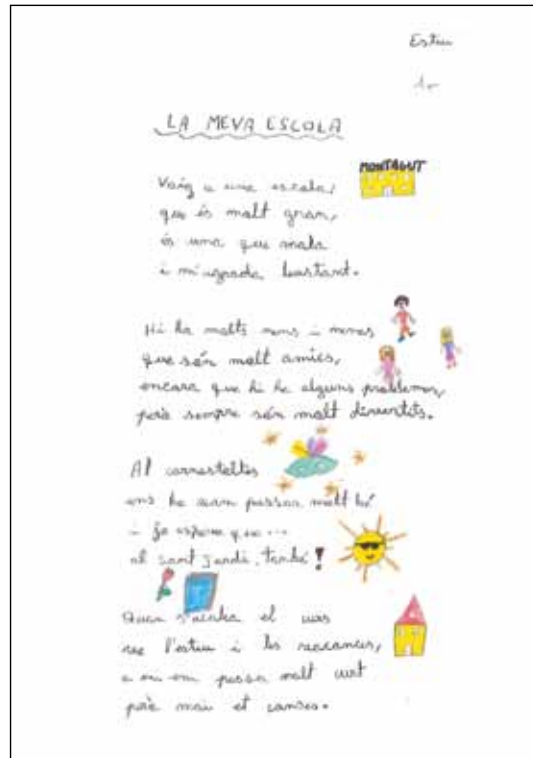 Estiu
1r
LA MEVA ESCOLA
MONTAGUT
Vaig a una escola,
que és molt gran,
és una que mola
i m'agrada bastant.
Hi ha molts nens i nenes
que són molt amics,
encara que hi ha alguns problemes,
però sempre són molt divertits.
Al carnestoltes
ens ho vam passar molt bé
i jo espero que...
al sant Jordi, també!
Quan s'acaba el curs
ve l'estiu i les vacances,
a mi em passa molt curt
però mai et canses.